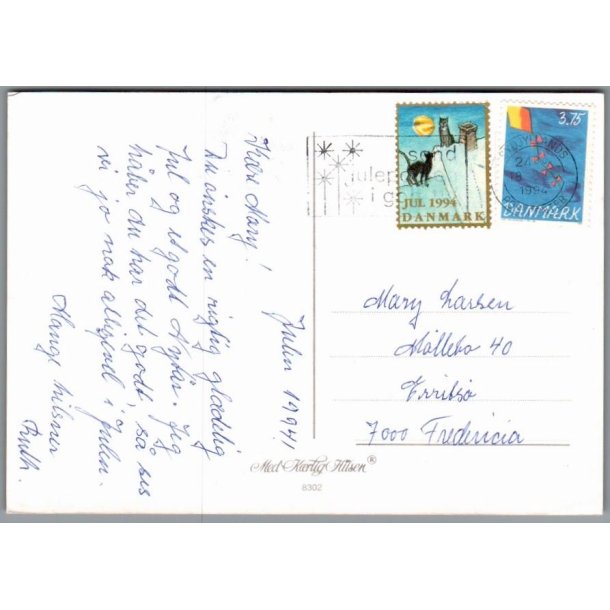 Julen 1994!
Kære Mary!
Du ønskes en rigtig glædelig
Jul og et godt Nytår. Jeg
håber du har det godt, så ses
vi jo nok alligevel i Julen.
Mange hilsner
Ruth.
send
julepo
i g
JUL 1994
DANMARK
3.75
DANMARK
1994
Mary Larsen
Møllebo 40
Erritsø
7000 Fredericia
Med Kærlig Hilsen®
8302